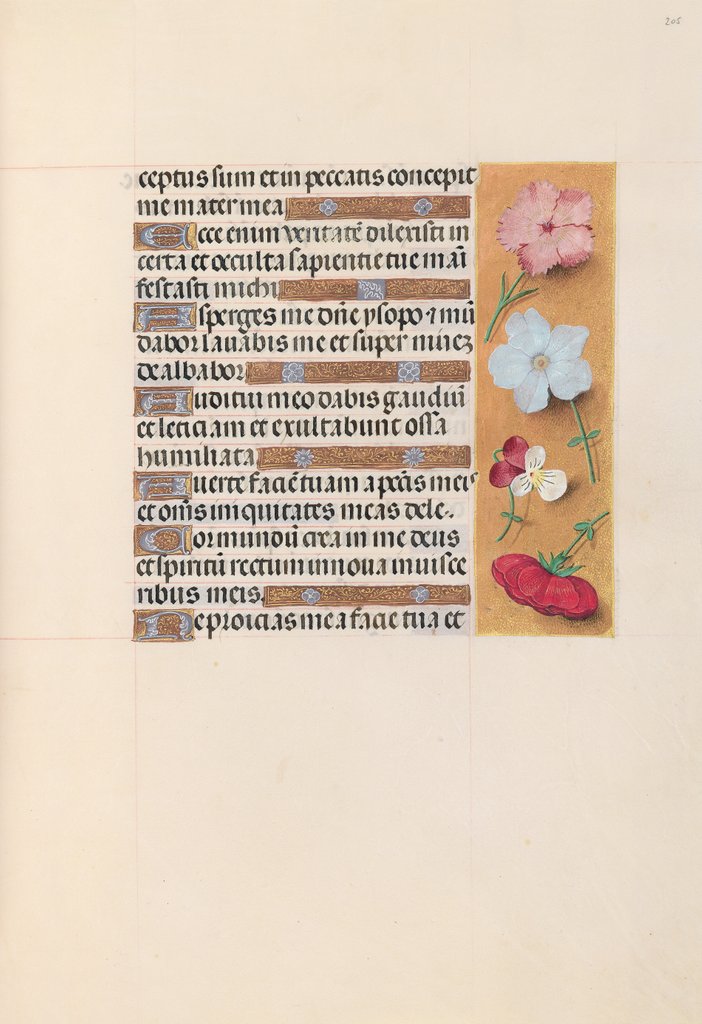 205
ceptus sum et in peccatis concepit
me mater mea
Ecce enim veritatē dilexisti in
certa et occulta sapientie tue mãi
festasti michi
Asperges me dñe ysopo ⁊ mũ
dabor lavabis me et super nivez
dealbabor
Auditui meo dabis gaudiũ
et leticiam et exultabunt ossa
humiliata
Averte faciē tuam a pctĩs meis
et oms̃ iniquitates meas dele.
Cor mundũ crea in me deus
et spiritũ rectum innova in visce
ribus meis.
Ne proicias me a facie tua et